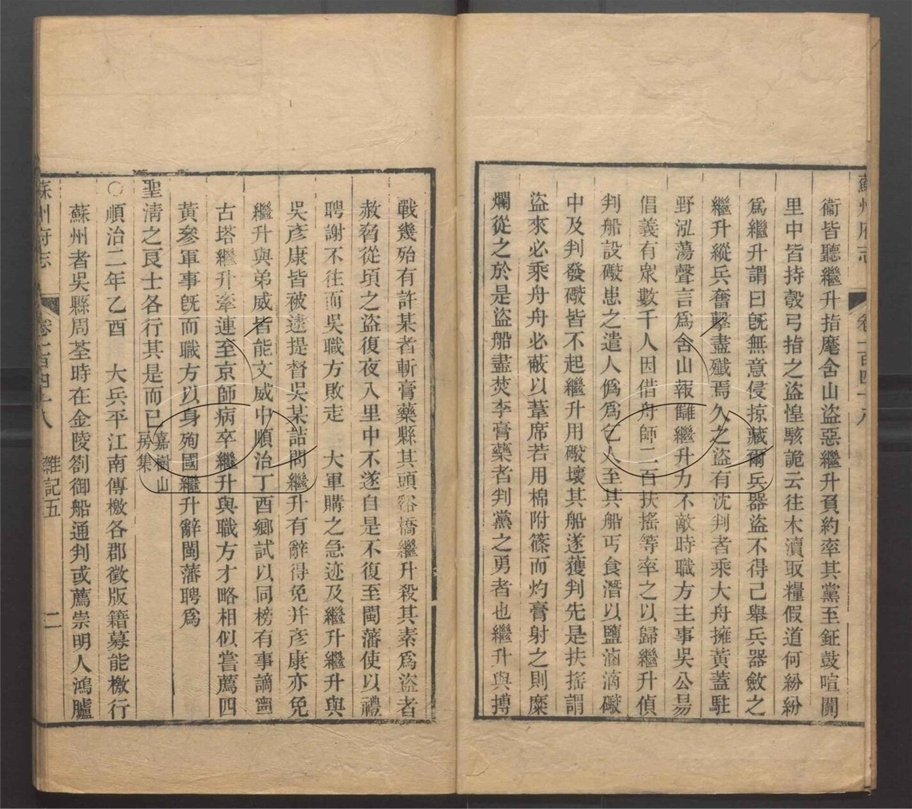 蘇州府志　卷一百四十八
衞皆聽繼升指麾舍山盜惡繼升負約率其黨至鉦鼓喧闐
里中皆持彀弓揹之盜惶駭詭云往木瀆取糧假道何紛紛
爲繼升謂曰旣無意侵掠藏爾兵器盜不得已舉兵器斂之
繼升縱兵奮擊盡殲焉久之盜有沈判者乘大舟擁黃蓋駐
野泓蕩聲言爲舍山報讎繼升力不敵時職方主事吳公昜
倡義有衆數千人因借舟師二百扶搖等率之以歸繼升偵
判船設礮患之遣人僞爲乞人至其船丐食潛以鹽滷滴礮
中及判發礮皆不起繼升用礮壞其船遂獲判先是扶搖謂
盜來必乘舟舟必蔽以葦席若用棉附篠而灼膏射之則糜
爛從之於是盜船盡焚李膏藥者判黨之勇者也繼升與搏
戰幾殆有許某者斬膏藥縣其頭谿橋繼升殺其素爲盜者
赦脅從頃之盜復夜入里中不遂自是不復至閩藩使以禮
聘謝不往而吳職方敗走　大軍購之急迹及繼升繼升與
吳彥康皆被逮提督吳某詰問繼升有辭得免幷彥康亦免
繼升與弟威皆能文威中順治丁酉鄉試以同榜有事謫寧
古塔繼升牽連至京師病卒繼升與職方才略相似嘗薦四
黃參軍事旣而職方以身殉國繼升辭閩藩聘爲
聖淸之良士各行其是而已嘉樹山房集
○順治二年乙酉　大兵平江南傳檄各郡徵版籍募能檄行
蘇州者吳縣周荃時在金陵劄御船通判或薦崇明人鴻臚
蘇州府志　卷一百四十八　雜記五　二